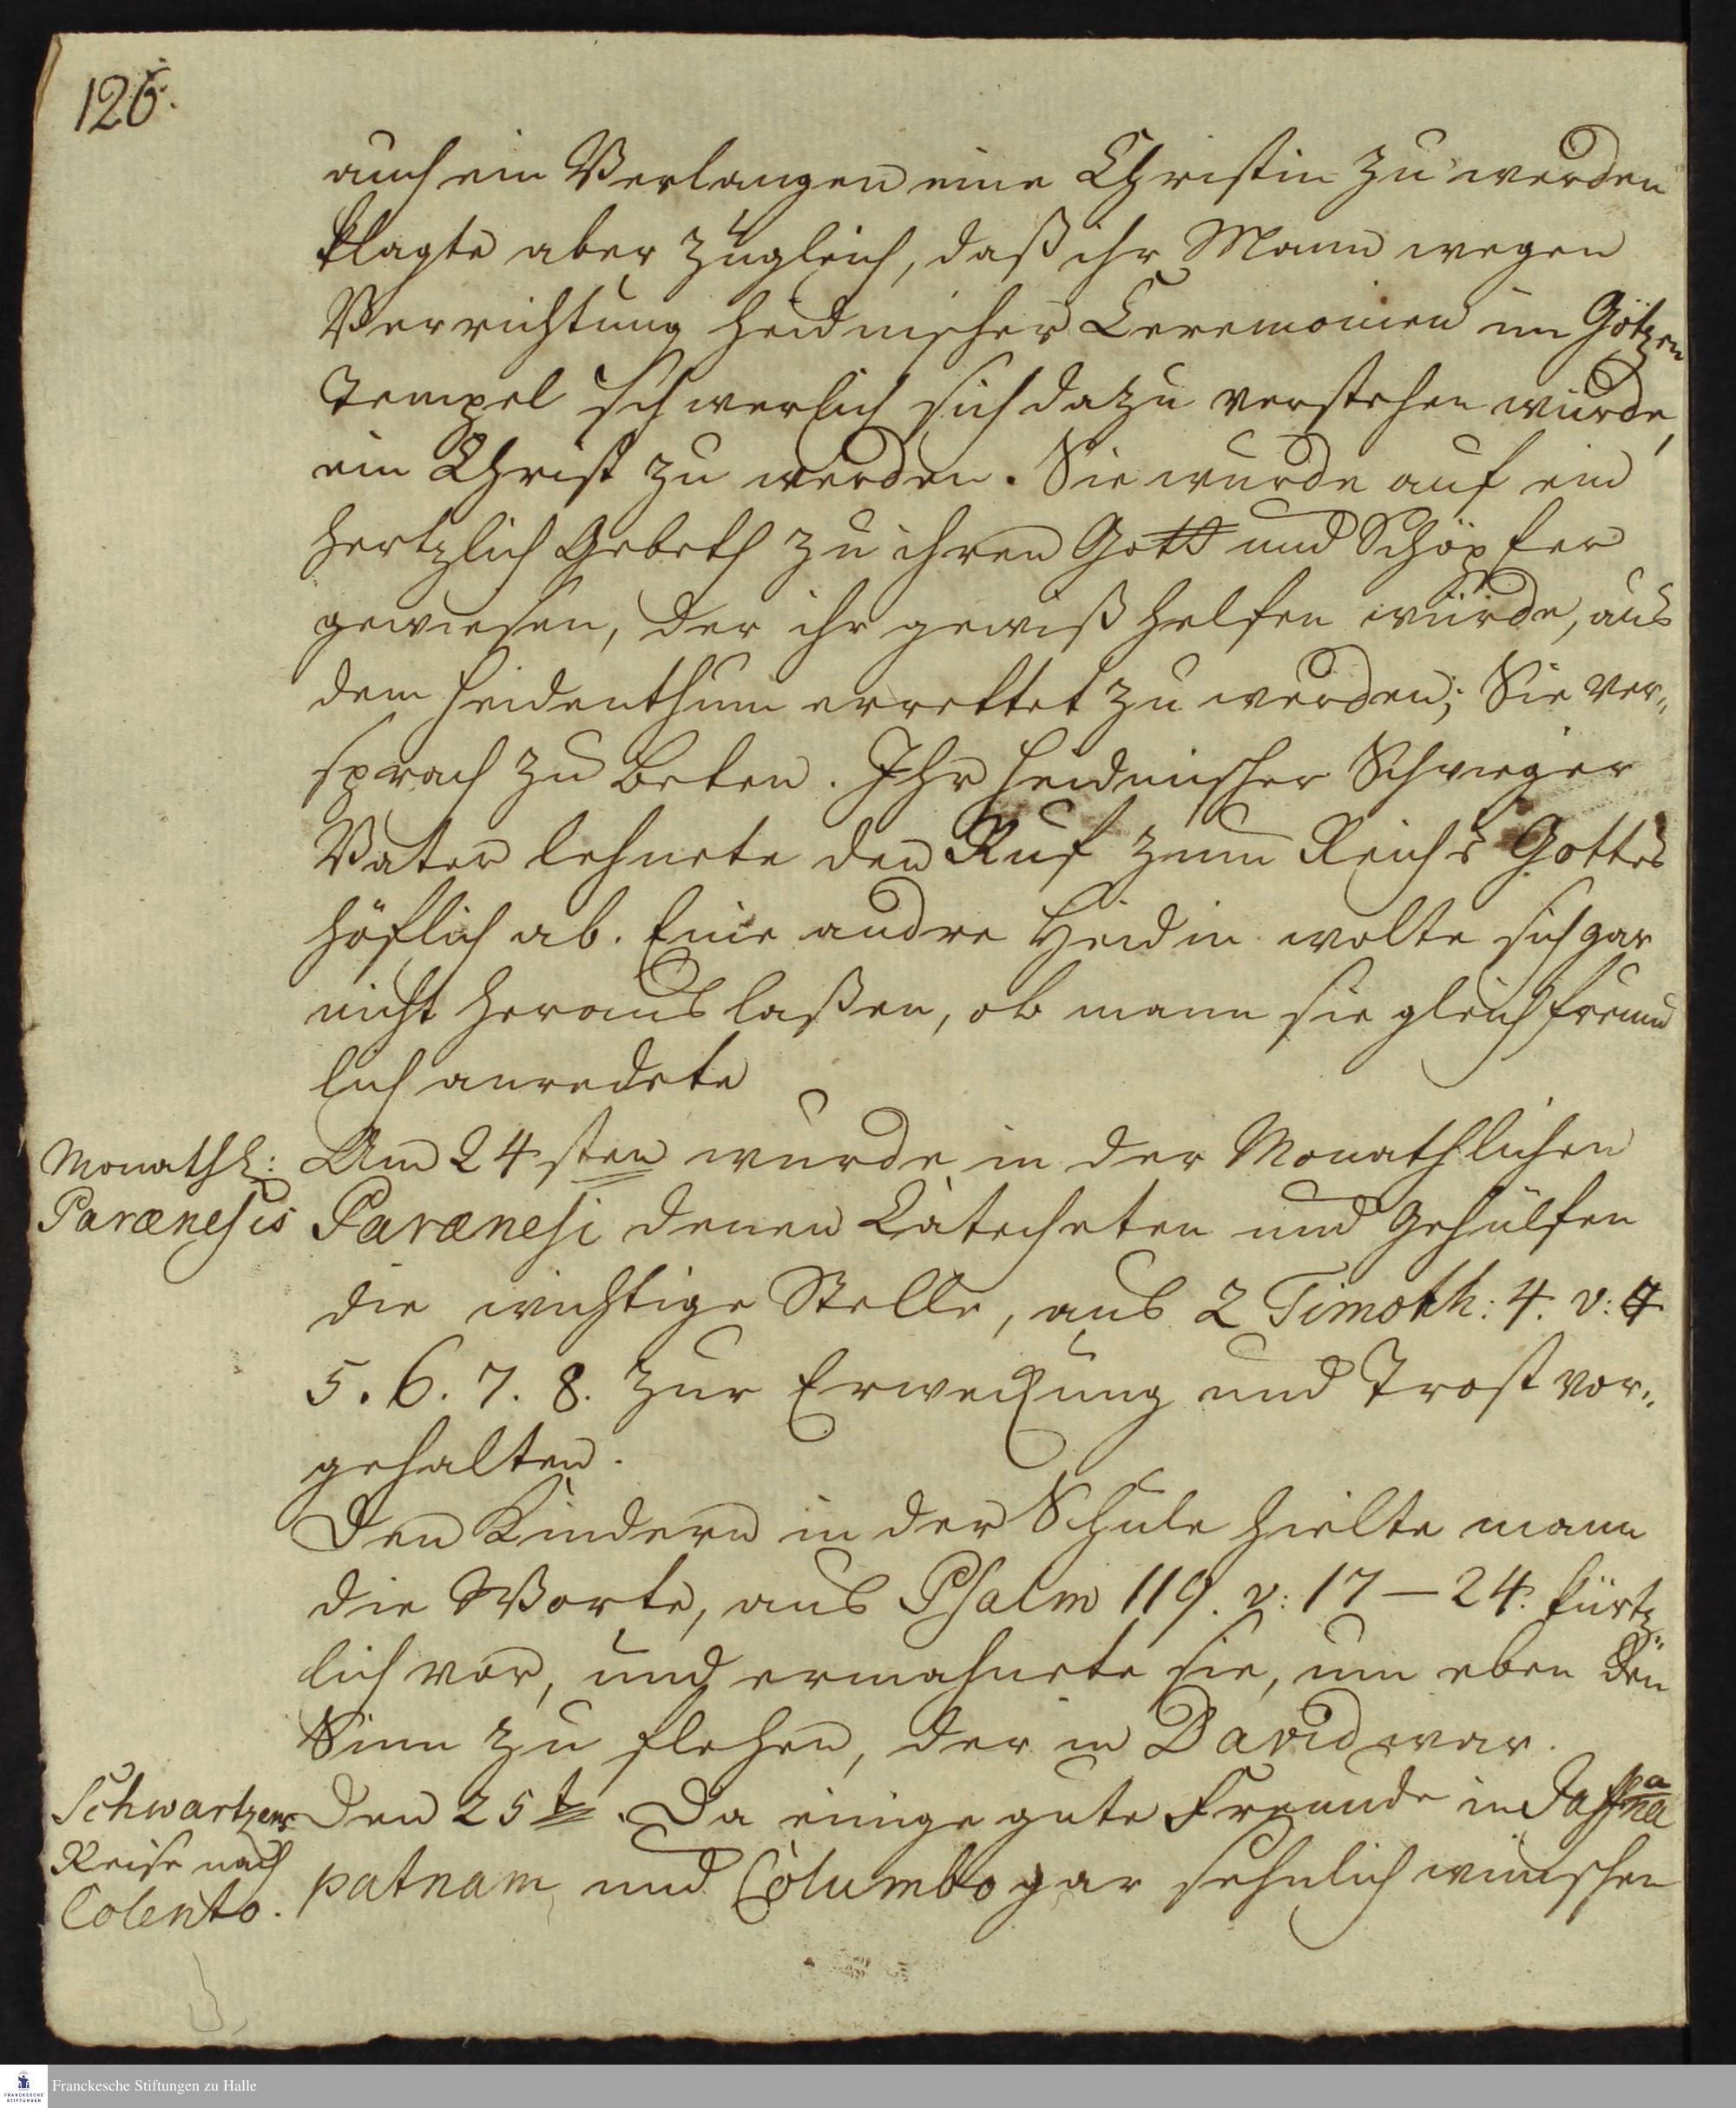 126.
auch ein Verlangen eine Christin zu werden
klagte aber zugleich, daß ihr Mann wegen
Verrichtung heidnischer Ceremonien im Götzen
Tempel schwerlich sich dazu verstehen würde,
ein Christ zu werden. Sie wurde auf ein
hertzlich Gebeth zu ihren Gott und Schöpfer
gewiesen, der ihr gewiß helfen würde, aus
dem Heidenthum errettet zu werden; Sie ver„
sprach zu beten. Ihr heidnischer Schwieger
Vater lehnete den Ruf zum Reiche Gottes
höflich ab. Eine andre Heidin wolte sich gar
nicht heraus laßen, ob mann sie gleich freund
lich anredete
Monathl:
Parænesis
Am 24sten wurde in der Monathlichen
Parænesi denen Catecheten und Gehülfen
die wichtige Stelle, aus 2 Timoth: 4. v:
5. 6. 7. 8. zur Erweckung und Trost vor„
gehalten.
Den Kindern in der Schule hielte mann
die Worte, aus Psalm 119. v: 17–24. kürtz„
lich vor, und ermahnete sie, um eben den
Sinn zu flehen, der in David war.
Schwartzens
Reise nach
Colento.
Den 25t. Da einige gute Freunde in Jaffna
patnam und Columbo gar sehnlich wünschen
Franckesche Stiftungen zu Halle
FRANCKESCHE
STIFTUNGEN